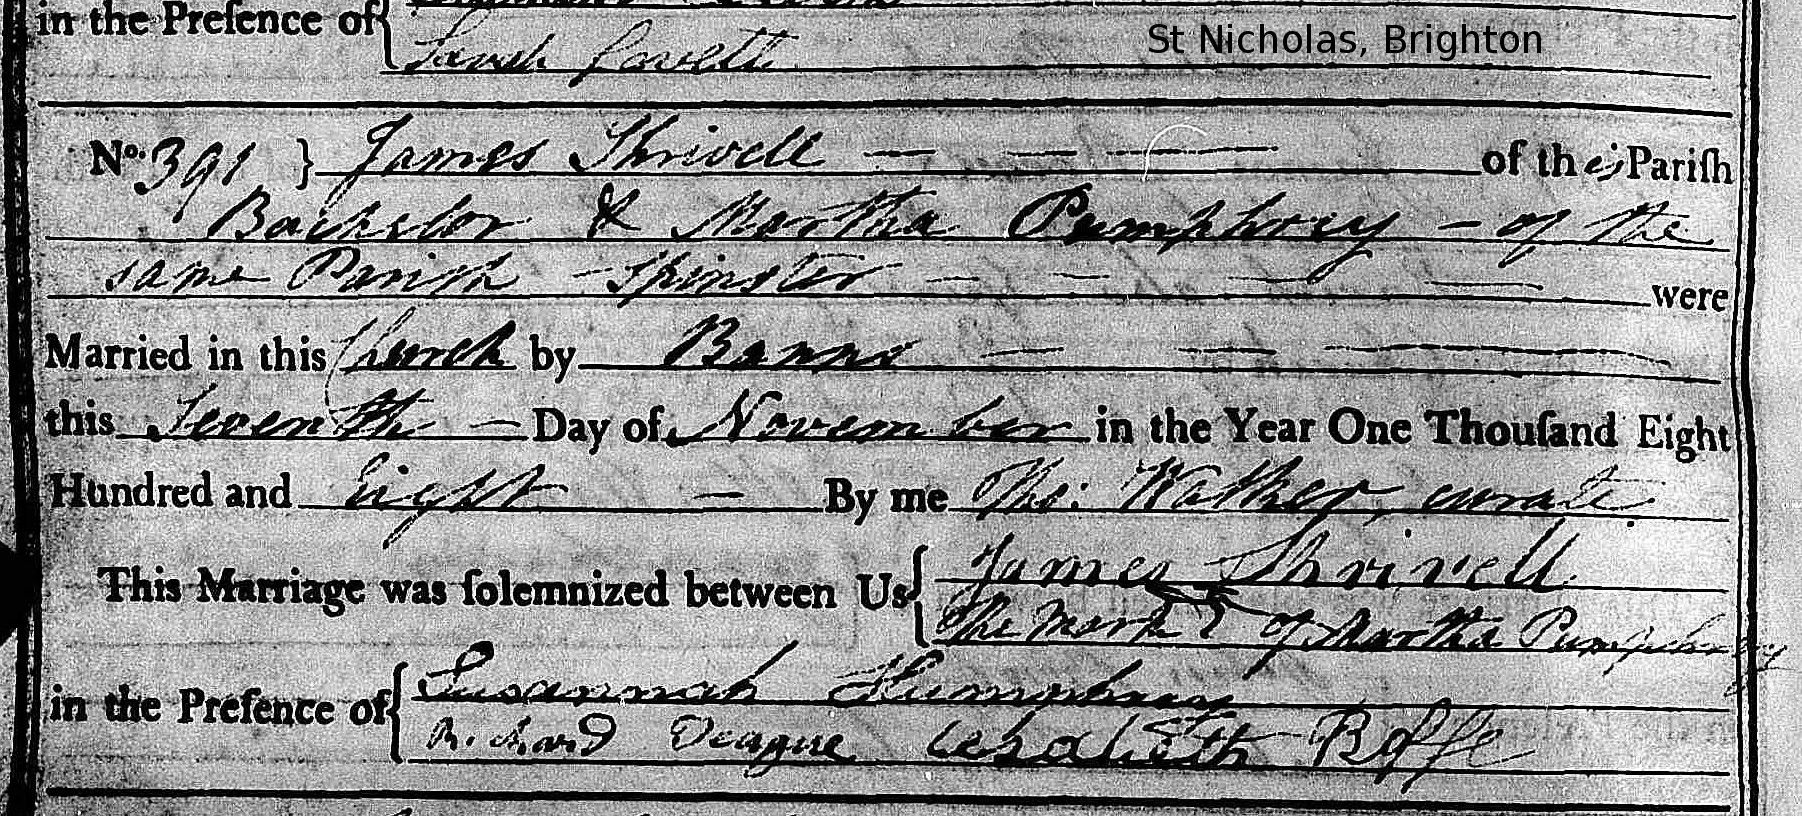 in the Preſence of { Sarah
St Nicholas, Brighton
No. 391 } James Shrivell — — — of this Pariſh
Bachelor & Martha Pumphrey – of the
same Parish – Spinster — — — — were
Married in this Church by Banns — — —
this Seventh — Day of November in the Year One Thouſand Eight
Hundred and Eight — By me Thos: Walker, curate.
This Marriage was ſolemnized between Us { James Shrivell
The Mark of Martha Pumphrey
in the Preſence of { Susannah Humphrey
Richard Deague